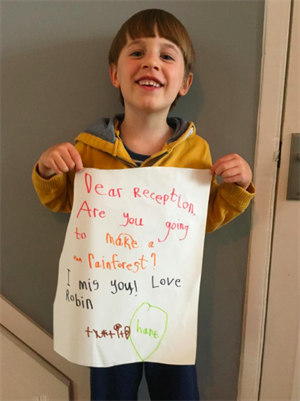 Dear Reception,
Are you going
to make a
Rainforest?
I mis you! Love
Robin